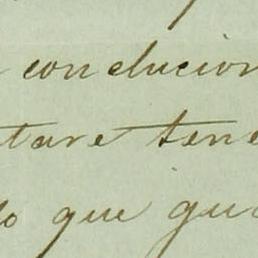 conclucion
tare tene
lo que gus